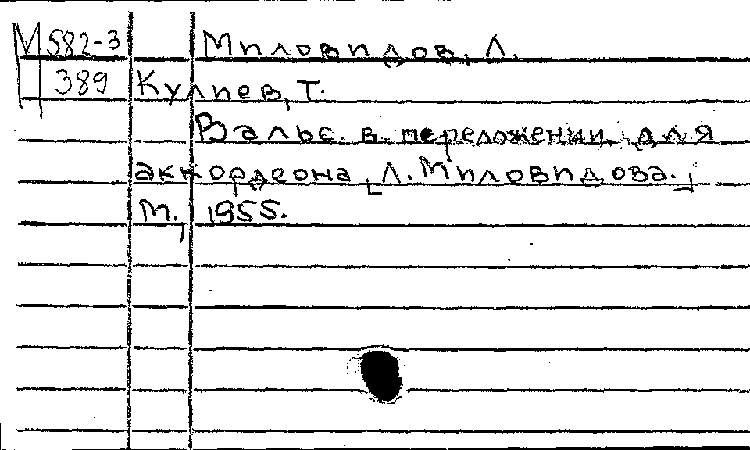 М 582-3 Миловидов, Л.
389 Кулиев, Т.
Вальс. в. переложении для
аккордеона [Л. Миловидова.]
М., 1955.